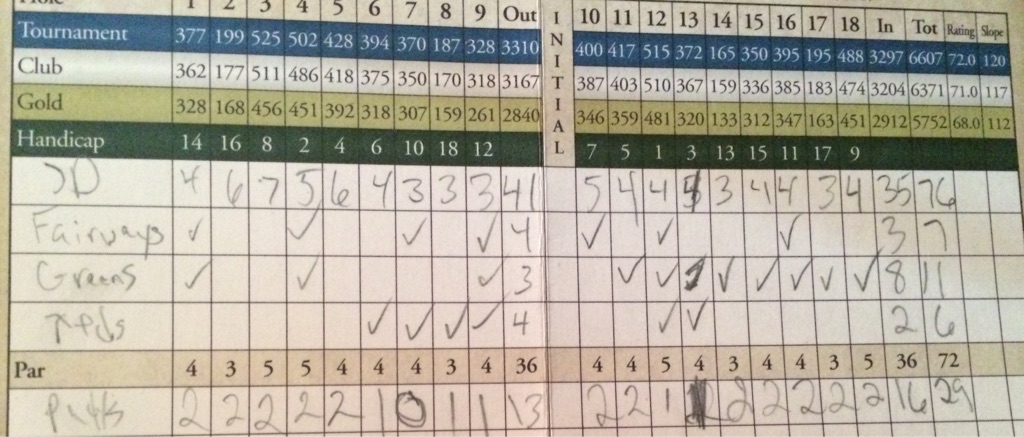 Hole 1 2 3 4 5 6 7 8 9 Out INITIAL 10 11 12 13 14 15 16 17 18 In Tot Rating Slope
Tournament 377 199 525 502 428 394 370 187 328 3310 400 417 515 372 165 350 395 195 488 3297 6607 72.0 120
Club 362 177 511 486 418 375 350 170 318 3167 387 403 510 367 159 336 385 183 474 3204 6371 71.0 117
Gold 328 168 456 451 392 318 307 159 261 2840 346 359 481 320 133 312 347 163 451 2912 5752 68.0 112
Handicap 14 16 8 2 4 6 10 18 12 7 5 1 3 13 15 11 17 9
JD 4 6 7 5 6 4 3 3 3 41 5 4 4 3 4 4 3 4 35 76
Fairways ✓ ✓ ✓ ✓ 4 ✓ ✓ ✓ 3 7
Greens ✓ ✓ ✓ 3 ✓ ✓ ✓ ✓ ✓ ✓ ✓ 8 11
✓ ✓ ✓ ✓ 4 ✓ ✓ 2 6
Par 4 3 5 5 4 4 4 3 4 36 4 4 5 4 3 4 4 3 5 36 72
Putts 2 2 2 2 2 1 0 1 1 13 2 2 1 2 2 2 2 2 16 29